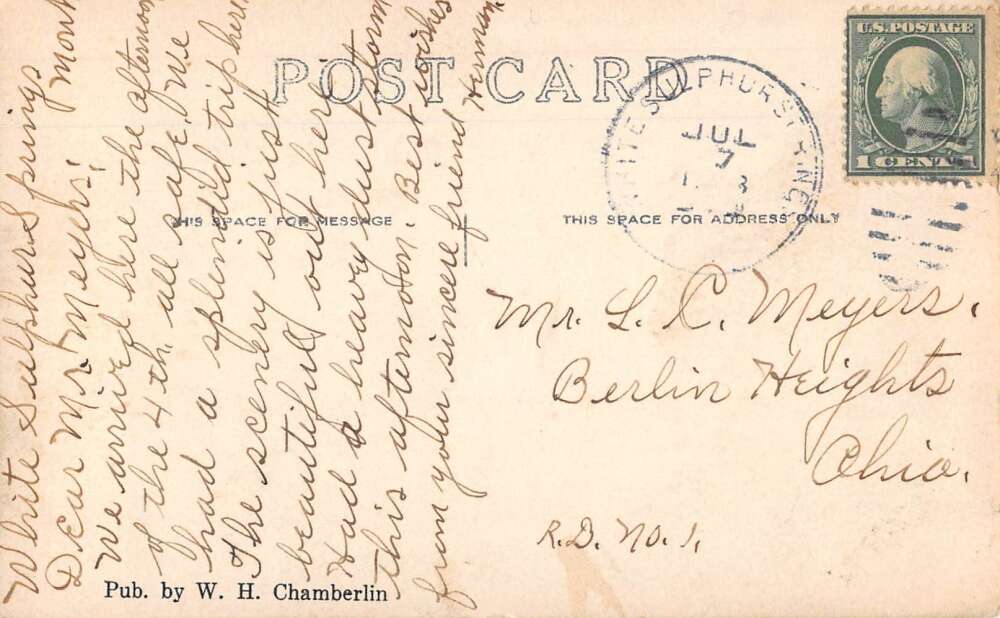 POST CARD
THIS SPACE FOR MESSAGE
THIS SPACE FOR ADDRESS ONLY
White Sulphur Springs
Mont
Dear Mr. Meyers:
We arrived here the afternoon
of the 4th, all safe, We
had a splendid trip here
The scenery is just
beautiful out here
Had a heavy dust storm
this afternoon. Best wishes
from your sincere friend
Herman,
Pub. by W. H. Chamberlin
WHITE SULPHUR SPRINGS
JUL
7
U.S. POSTAGE
1 CENT 1
Mr. L. C. Meyers,
Berlin Heights
Ohio.
R.D. No. 1,